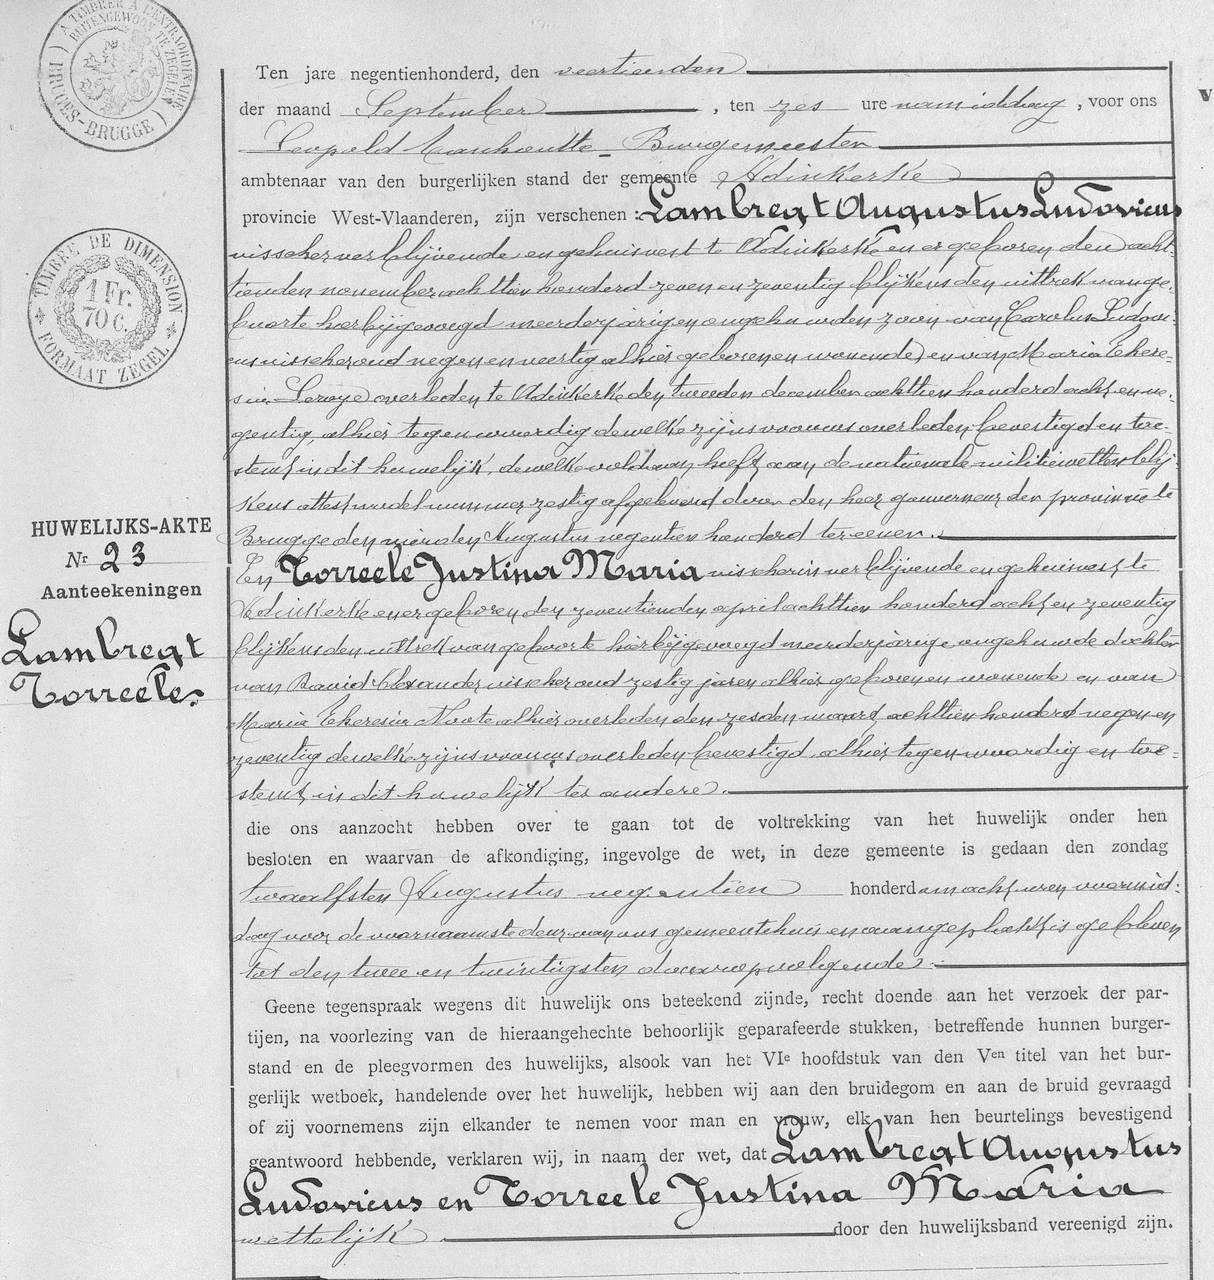 A TIMBRER À L'EXTRAORDINAIRE
BUITENGEWOON TE ZEGELEN
( BRUGES-BRUGGE )
Ten jare negentienhonderd, den veertienden
der maand September , ten zes ure namiddag , voor ons
Leopold Burgemeester
ambtenaar van den burgerlijken stand der gemeente Adinkerke
provincie West-Vlaanderen, zijn verschenen : Lambregt Augustus Ludovicus
visscher verblijvende en gehuisvest te Adinkerke en er geboren den acht-
tienden november achttien honderd zeven en zeventig blijkens den uittrek van ge-
boorte hierbijgevoegd meerderjarigen ongehuwden zoon van Carolus Ludovi-
cus visscher oud negen en veertig alhier geboren en wonende) en van Maria There-
sia Leroye overleden te Adinkerke den tweeden december achttien honderd acht en ne-
gentig, alhier tegenwoordig dewelke zijns vrouws overleden bevestigd en toe-
stemt in dit huwelijk, dewelke voldaan heeft aan de nationale militiewetten blij-
kens attest model nummer zestig afgeleverd door den heer gouverneur der provincie te
Brugge den vierden Augustus negentien honderd ter eenen.
En Torreele Justina Maria visscherin verblijvende en gehuisvest te
Adinkerke en er geboren den zeventienden april achttien honderd acht en zeventig
blijkens den uittrek van geboorte hierbijgevoegd meerderjarige ongehuwde dochter
van David Alexander visscher oud zestig jaren alhier geboren en wonende en van
Maria Theresia Noote alhier overleden den zesden maart achttien honderd negen en
zeventig dewelke zijns vrouws overleden bevestigd, alhier tegenwoordig en toe-
stemt in dit huwelijk ter andere.
die ons aanzocht hebben over te gaan tot de voltrekking van het huwelijk onder hen
besloten en waarvan de afkondiging, ingevolge de wet, in deze gemeente is gedaan den zondag
twaalfsten Augustus negentien honderd om acht uren voormid-
dag voor de voornaamste deur van ons gemeentehuis en aangeplakt is gebleven
tot den twee en twintigsten daaropvolgende.
Geene tegenspraak wegens dit huwelijk ons beteekend zijnde, recht doende aan het verzoek der par-
tijen, na voorlezing van de hieraangehechte behoorlijk geparafeerde stukken, betreffende hunnen burger-
stand en de pleegvormen des huwelijks, alsook van het VIe hoofdstuk van den Ven titel van het bur-
gerlijk wetboek, handelende over het huwelijk, hebben wij aan den bruidegom en aan de bruid gevraagd
of zij voornemens zijn elkander te nemen voor man en vrouw, elk van hen beurtelings bevestigend
geantwoord hebbende, verklaren wij, in naam der wet, dat Lambregt Augustus
Ludovicus en Torreele Justina Maria
wettelijk door den huwelijksband vereenigd zijn.
TIMBRE DE DIMENSION
1 Fr.
70 C.
FORMAAT ZEGEL
HUWELIJKS-AKTE
Nr 23
Aanteekeningen
Lambregt
Torreele.